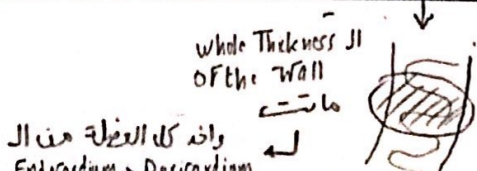 ال whole Thickness
of the Wall
ماتت
واخد كل العضلة من ال
Endocardium → Pericardium